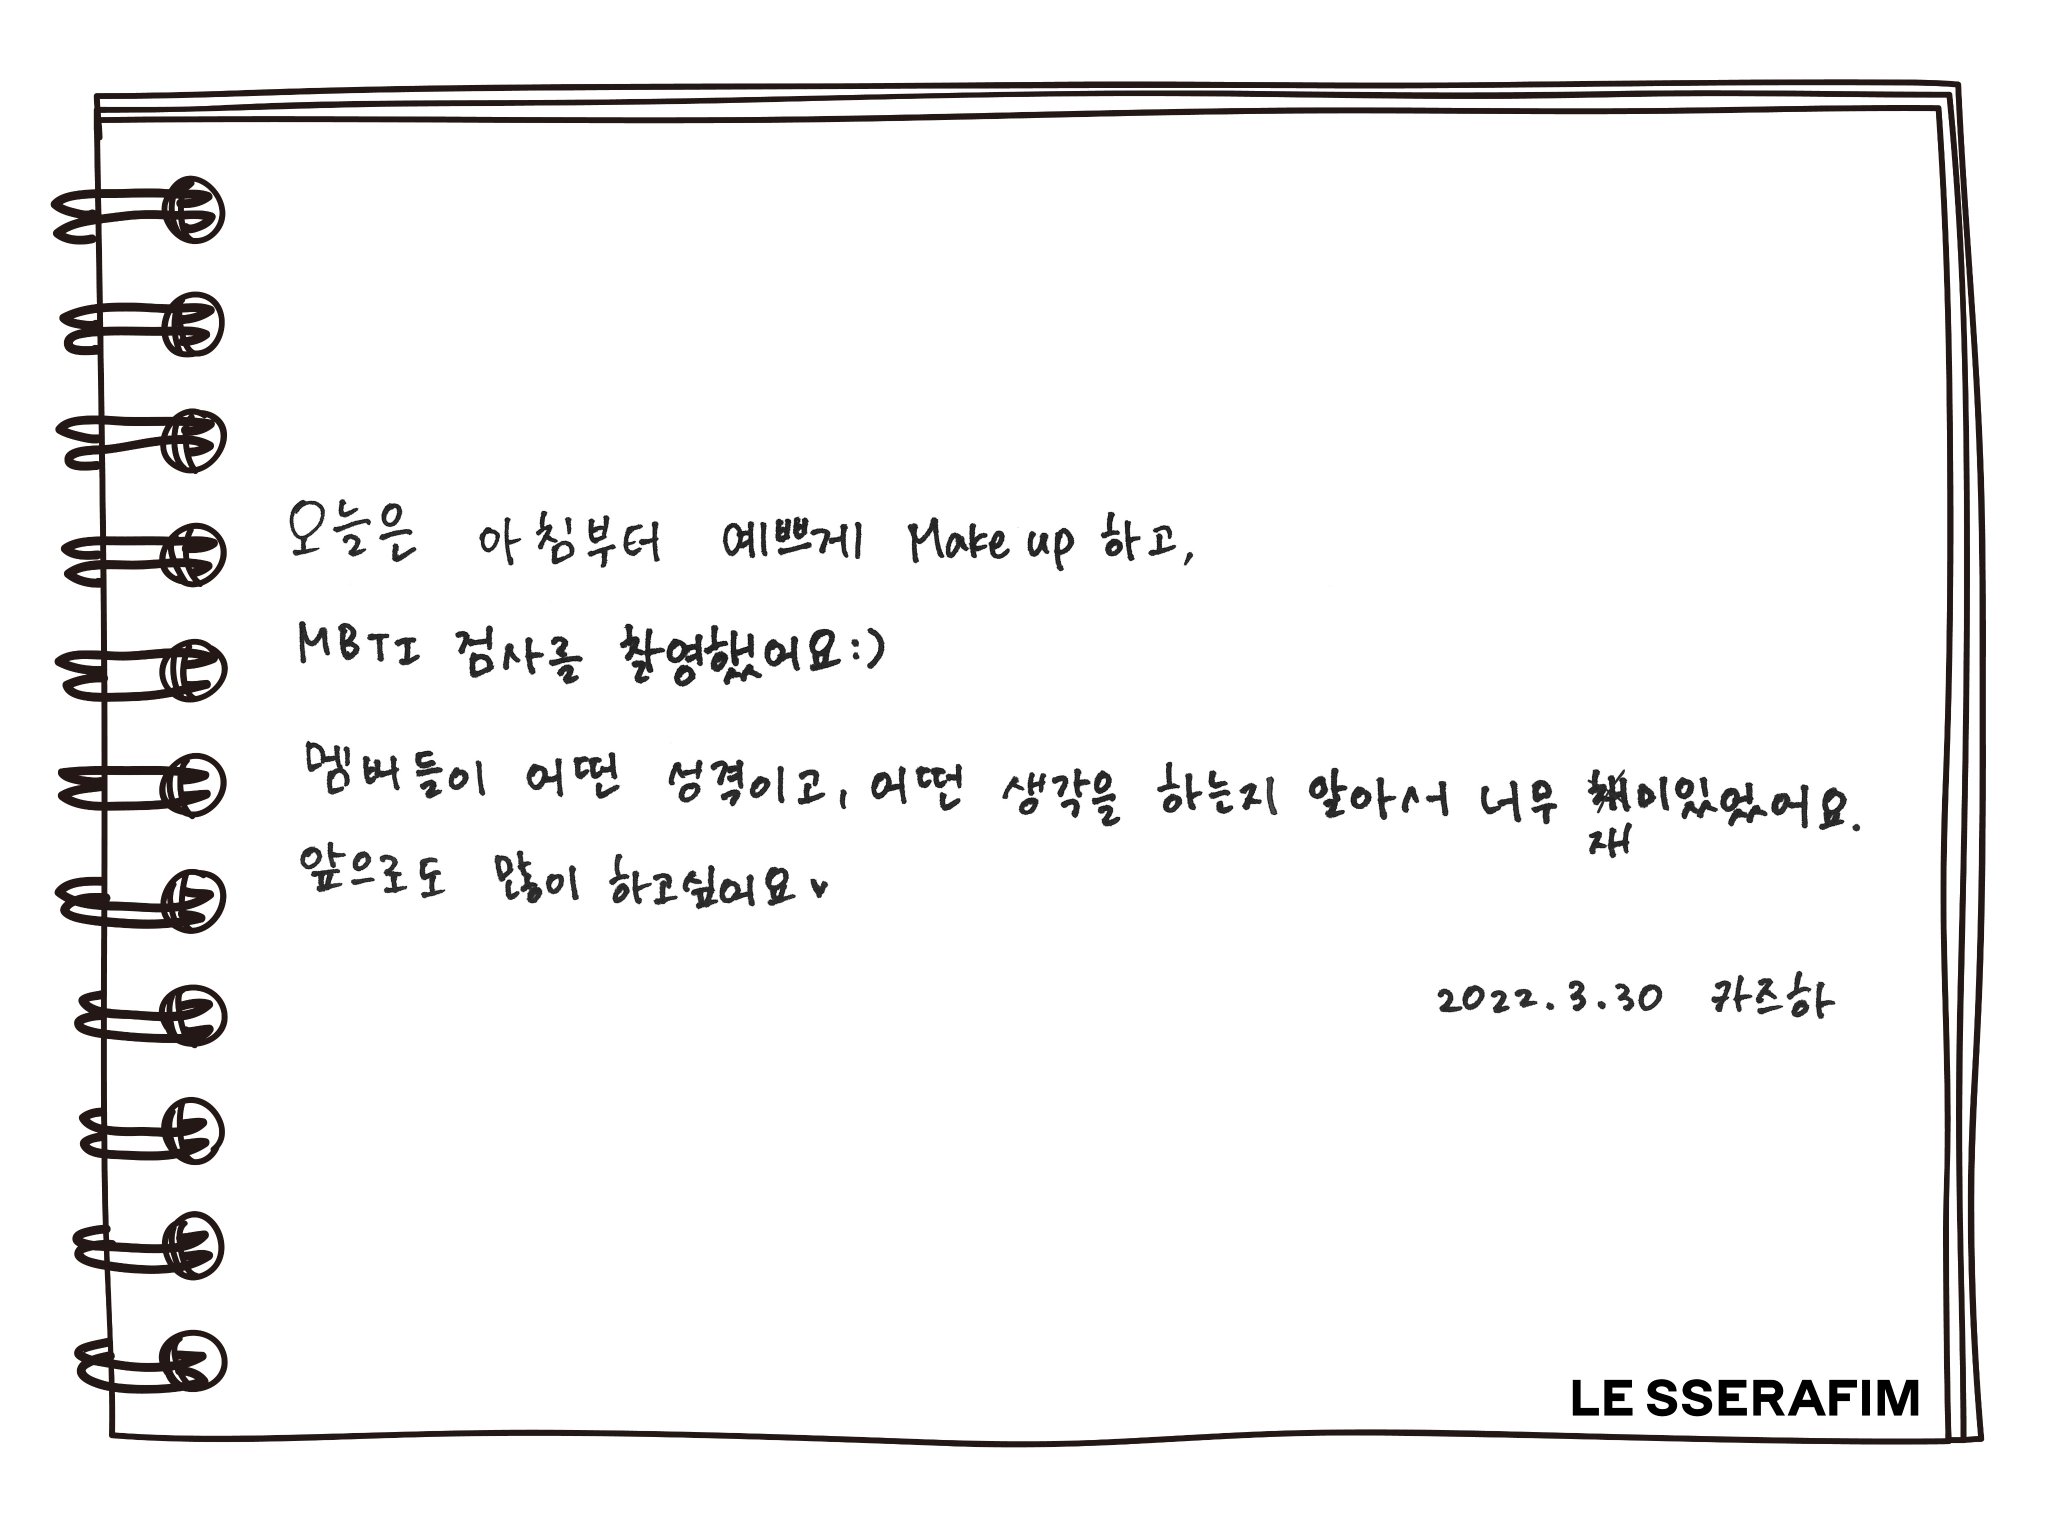 오늘은 아침부터 예쁘게 Make up 하고,
MBTI 검사를 촬영했어요:)
멤버들이 어떤 성격이고, 어떤 생각을 하는지 알아서 너무 재미있었어요.
앞으로도 많이 하고싶어요♥
2022.3.30 카즈하
LE SSERAFIM